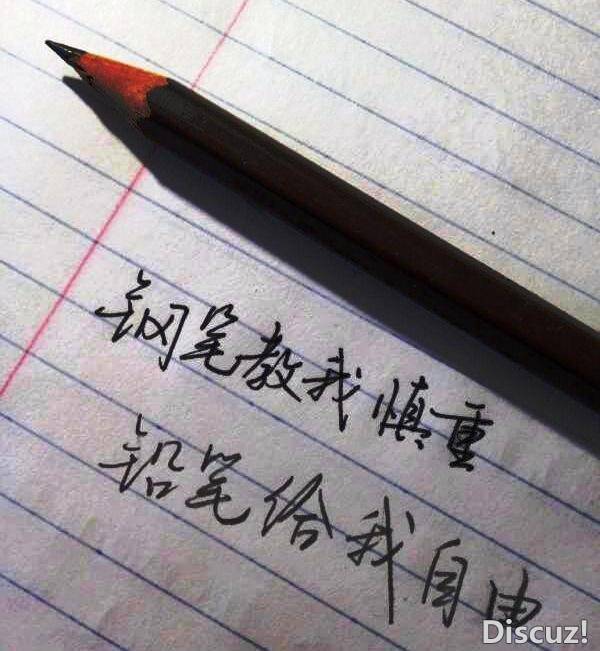 钢笔教我慎重
铅笔给我自由
Discuz!